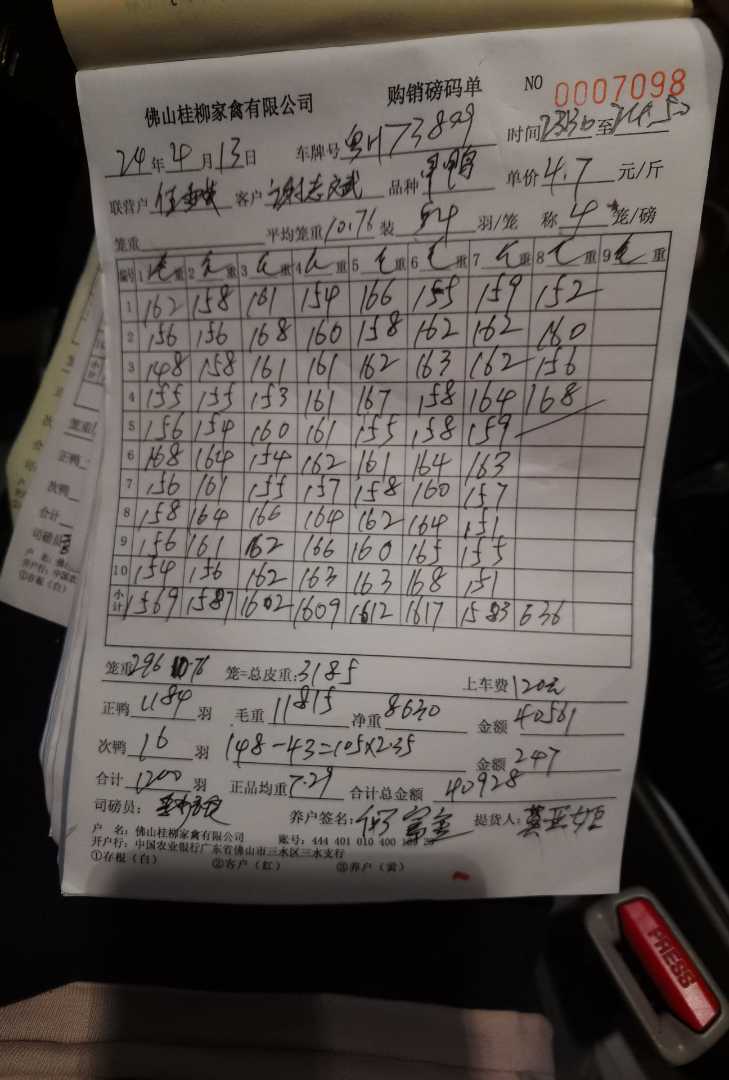 购销磅码单 NO 0007098
佛山桂柳家禽有限公司
24年4月13日 车牌号 粤H73899 时间 2336 至
联营户 客户 谢志斌 品种 单价 4.7 元/斤
笼重 平均笼重 10.76 装 54 羽/笼 称 4 笼/磅
编号 1 毛重 2 毛重 3 毛重 4 毛重 5 毛重 6 毛重 7 毛重 8 毛重 9 毛重
1 162 158 161 154 166 155 159 152
2 156 156 168 160 158 162 162 160
3 148 158 161 161 162 163 162 156
4 155 155 153 161 167 158 164 168
5 156 154 160 161 155 158 159
6 168 164 154 162 161 164 163
7 156 161 155 157 158 160 157
8 158 164 166 164 162 164 151
9 156 161 162 166 160 165 155
10 154 156 162 163 163 168 151
小计 1569 1587 1602 1609 1612 1617 1583 636
笼重 296 10.76 笼=总皮重: 3185 上车费 120元
正鸭 1184 羽 毛重 11815 净重 8630 金额 40561
次鸭 16 羽 148-43=105×2.35 金额 247
合计 1200 羽 正品均重 7.29 合计总金额 40928
司磅员: 养户签名: 何富金 提货人: 莫亚姬
户 名: 佛山桂柳家禽有限公司 账号: 444 401 010 400
开户行: 中国农业银行广东省佛山市三水区三水支行
①存根（白） ②客户（红） ③养户（黄）
PRESS